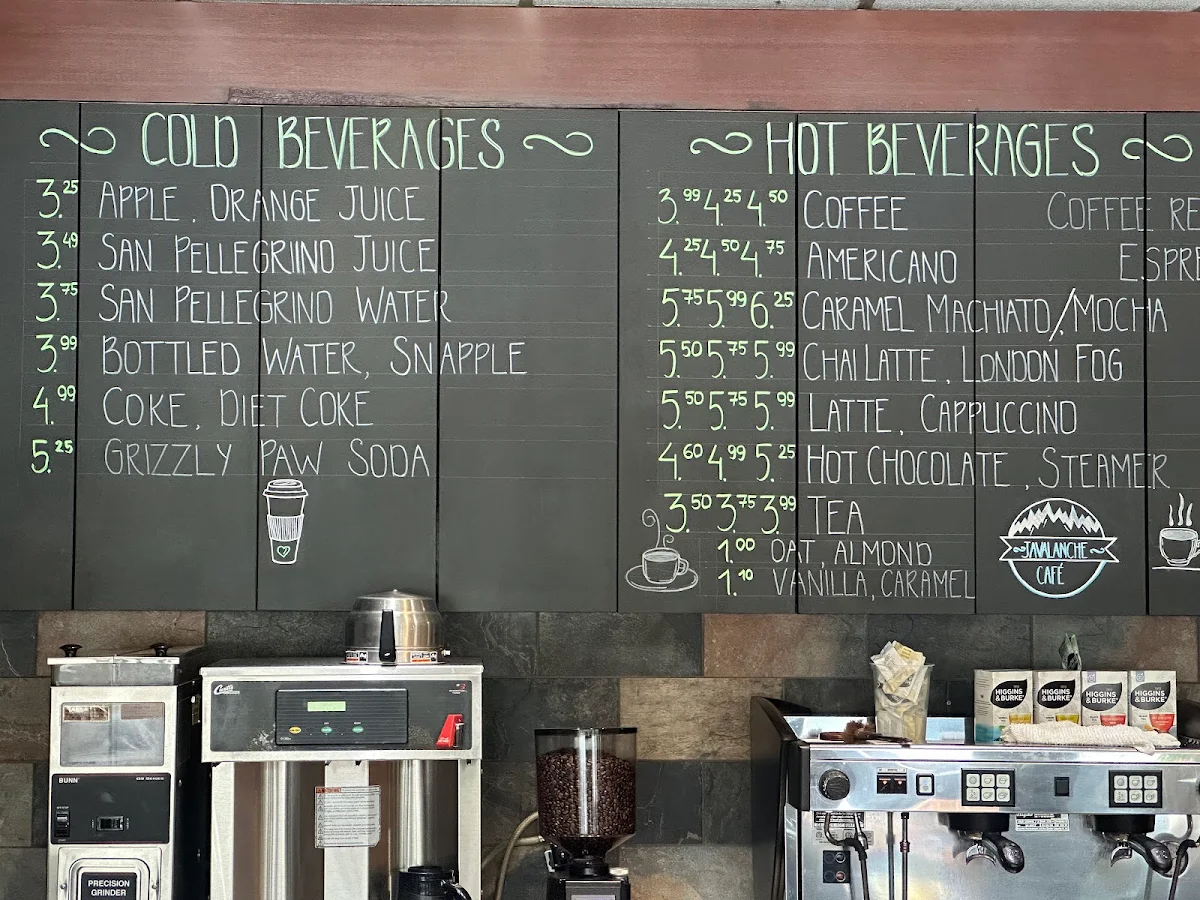 COLD BEVERAGES
3.25 APPLE, ORANGE JUICE
3.49 SAN PELLEGRINO JUICE
3.75 SAN PELLEGRINO WATER
3.99 BOTTLED WATER, SNAPPLE
4.99 COKE, DIET COKE
5.25 GRIZZLY PAW SODA
HOT BEVERAGES
3.99 4.25 4.50 COFFEE COFFEE RE
4.25 4.50 4.75 AMERICANO ESPRE
5.75 5.99 6.25 CARAMEL MACHIATO/MOCHA
5.50 5.75 5.99 CHAI LATTE, LONDON FOG
5.50 5.75 5.99 LATTE, CAPPUCCINO
4.60 4.99 5.25 HOT CHOCOLATE, STEAMER
3.50 3.75 3.99 TEA
1.00 OAT, ALMOND
1.10 VANILLA, CARAMEL
JAVALANCHE
CAFÉ
BUNN
PRECISION
GRINDER
Curtis
HIGGINS
&BURKE
HIGGINS
&BURKE
HIGGINS
&BURKE
HIGGINS
&BURKE